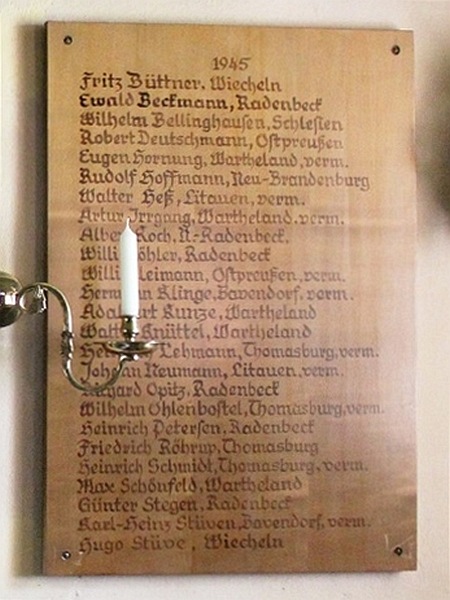 1945
Fritz Büttner, Wiecheln
Ewald Beckmann, Radenbeck
Wilhelm Bellinghausen, Schlesien
Robert Deutschmann, Ostpreußen
Eugen Hornung, Wartheland, verm.
Rudolf Hoffmann, Neu-Brandenburg
Walter Heß, Litauen, verm.
Artur Irrgang, Wartheland, verm.
Koch, N.-Radenbeck,
Willi Radenbeck
Ostpreußen, verm.
Klinge, Bavendorf, verm.
Kunze, Wartheland
Knüttel, Wartheland
Lehmann, Thomasburg, verm.
Johann Neumann, Litauen, verm.
Opitz, Radenbeck
Wilhelm Ohlenbostel, Thomasburg, verm.
Heinrich Petersen, Radenbeck
Friedrich Röhrup, Thomasburg
Heinrich Schmidt, Thomasburg, verm.
Max Schönfeld, Wartheland
Günter Stegen, Radenbeck
Karl-Heinz Stüven, Bavendorf, verm.
Hugo Stüve, Wiecheln